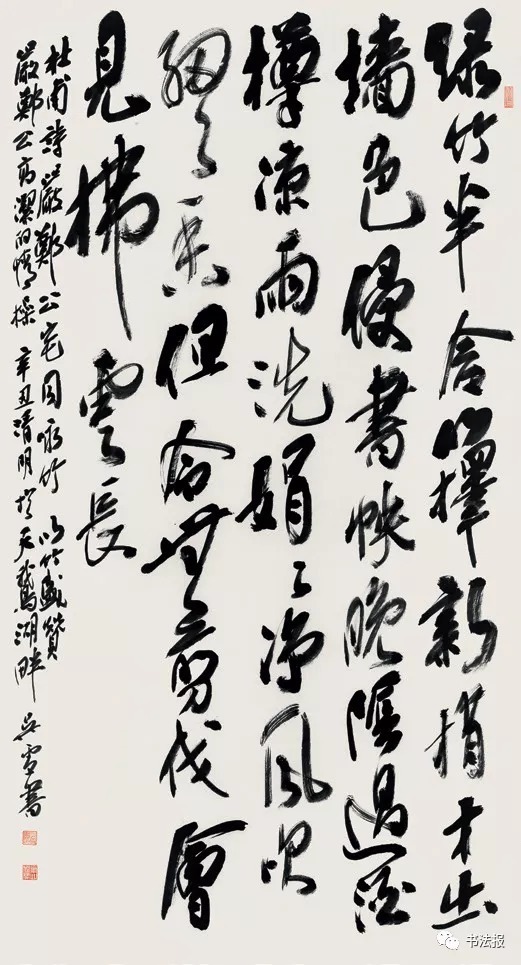 绿竹半含籜新梢才出
墙色侵書帙晚陰過酒
樽凉雨洗娟々净风吹
細々香但令無剪伐會
見拂雲長
杜甫詩嚴鄭公宅同咏竹 以竹盛贊
嚴鄭公高潔的情操 辛丑清明於天鵝湖畔 吴雪書
书法报